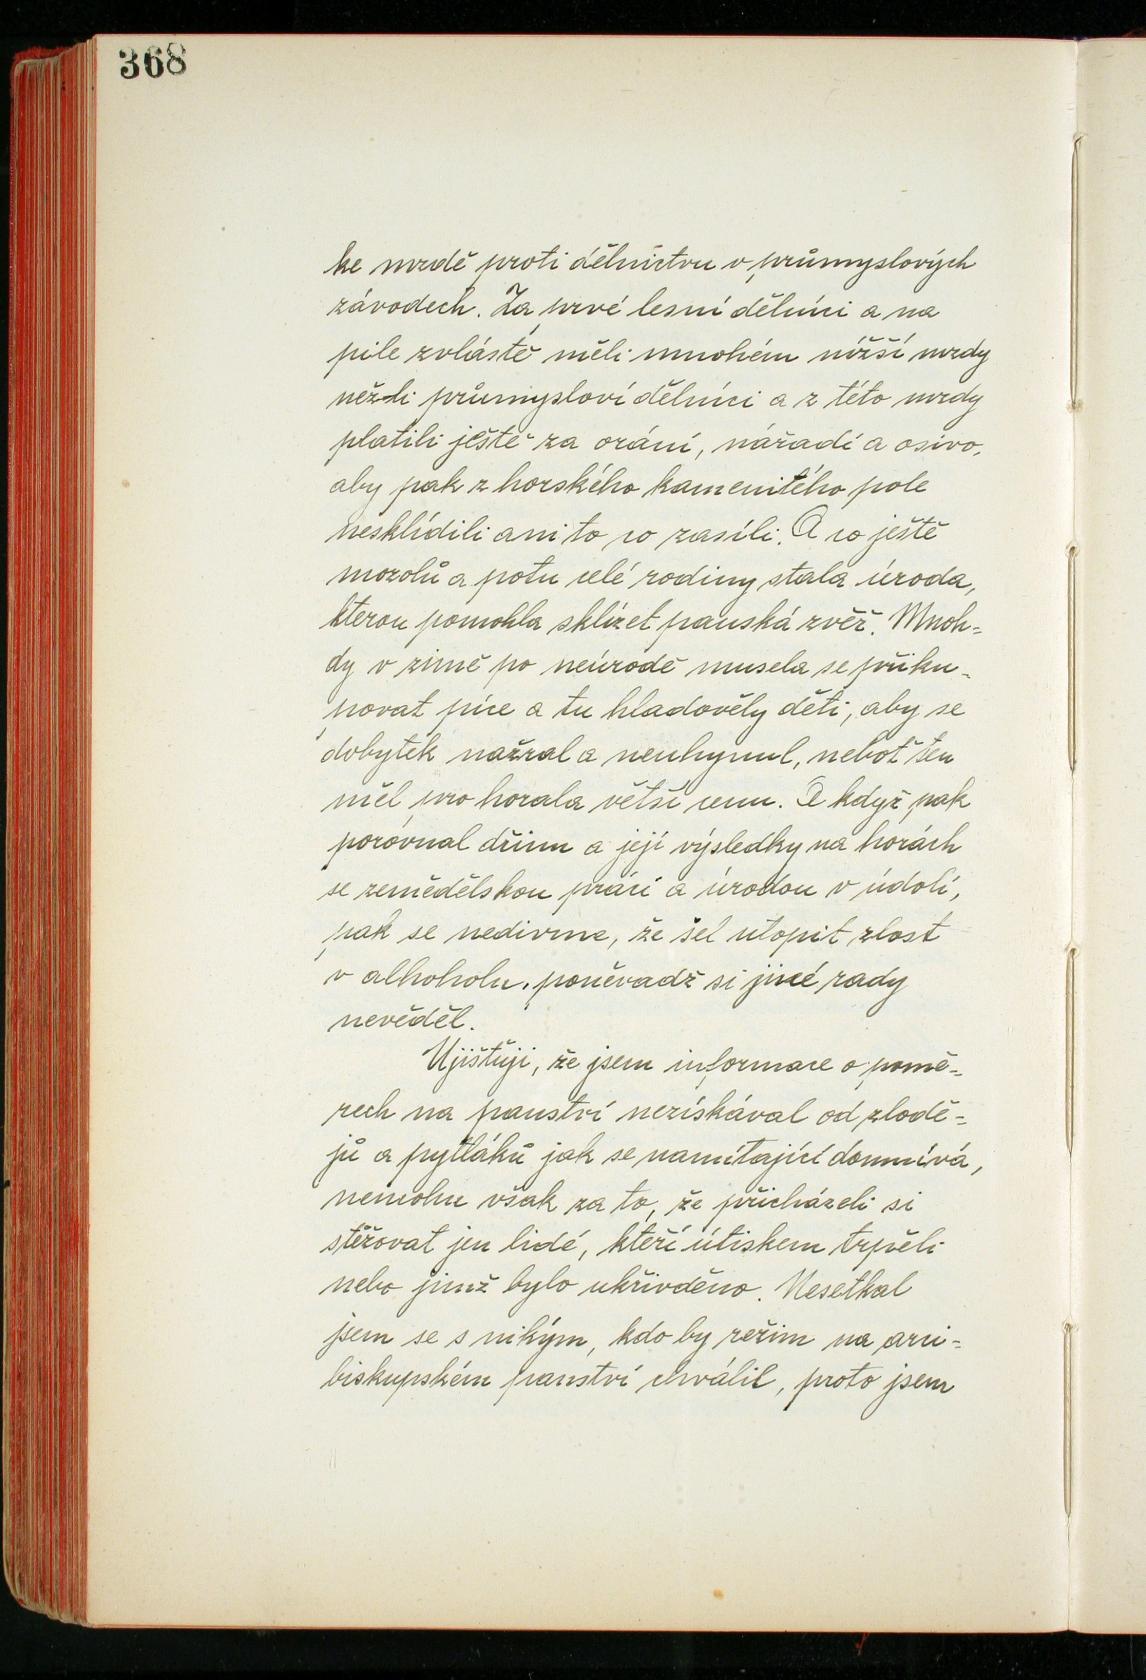 368
ke mzdě proti dělnictvu v průmyslových
závodech. Za prvé lesní dělníci a na
pile zvláště měli mnohém nižší mzdy
nežli průmysloví dělníci a z této mzdy
platili ještě za orání, nářadí a osivo,
aby pak z horského kamenitého pole
nesklidili ani to co zasíli. A co ještě
mozolů a potu celé rodiny stala úroda,
kterou pomohla sklízet panská zvěř. Mnoh-
dy v zimě po neúrodě musela se přiku-
povat píce a tu hladověly děti, aby se
dobytek nažral a neuhynul, neboť ten
měl pro horala větší cenu. A když pak
porovnal dřinu a její výsledky na horách
se zemědělskou prací a úrodou v údolí,
pak se nedivme, že šel utopit zlost
v alkoholu, poněvadž si jiné rady
nevěděl.
Ujišťuji, že jsem informace o pomě-
rech na panství nezískával od zlodě-
jů a pytláků jak se namítající domnívá,
nemohu však za to, že přicházeli si
stěžovat jen lidé, kteří útiskem trpěli
nebo jimž bylo ukřivděno. Nesetkal
jsem se s nikým, kdo by režim na arci-
biskupském panství chválil, proto jsem